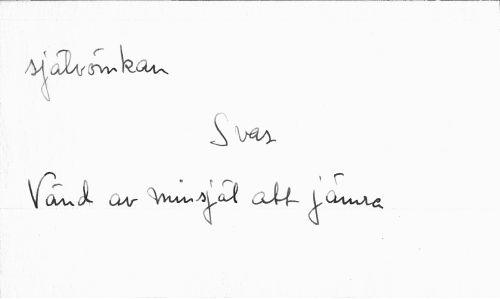 självömkan
Svas
Vänd av minsjäl att jämra